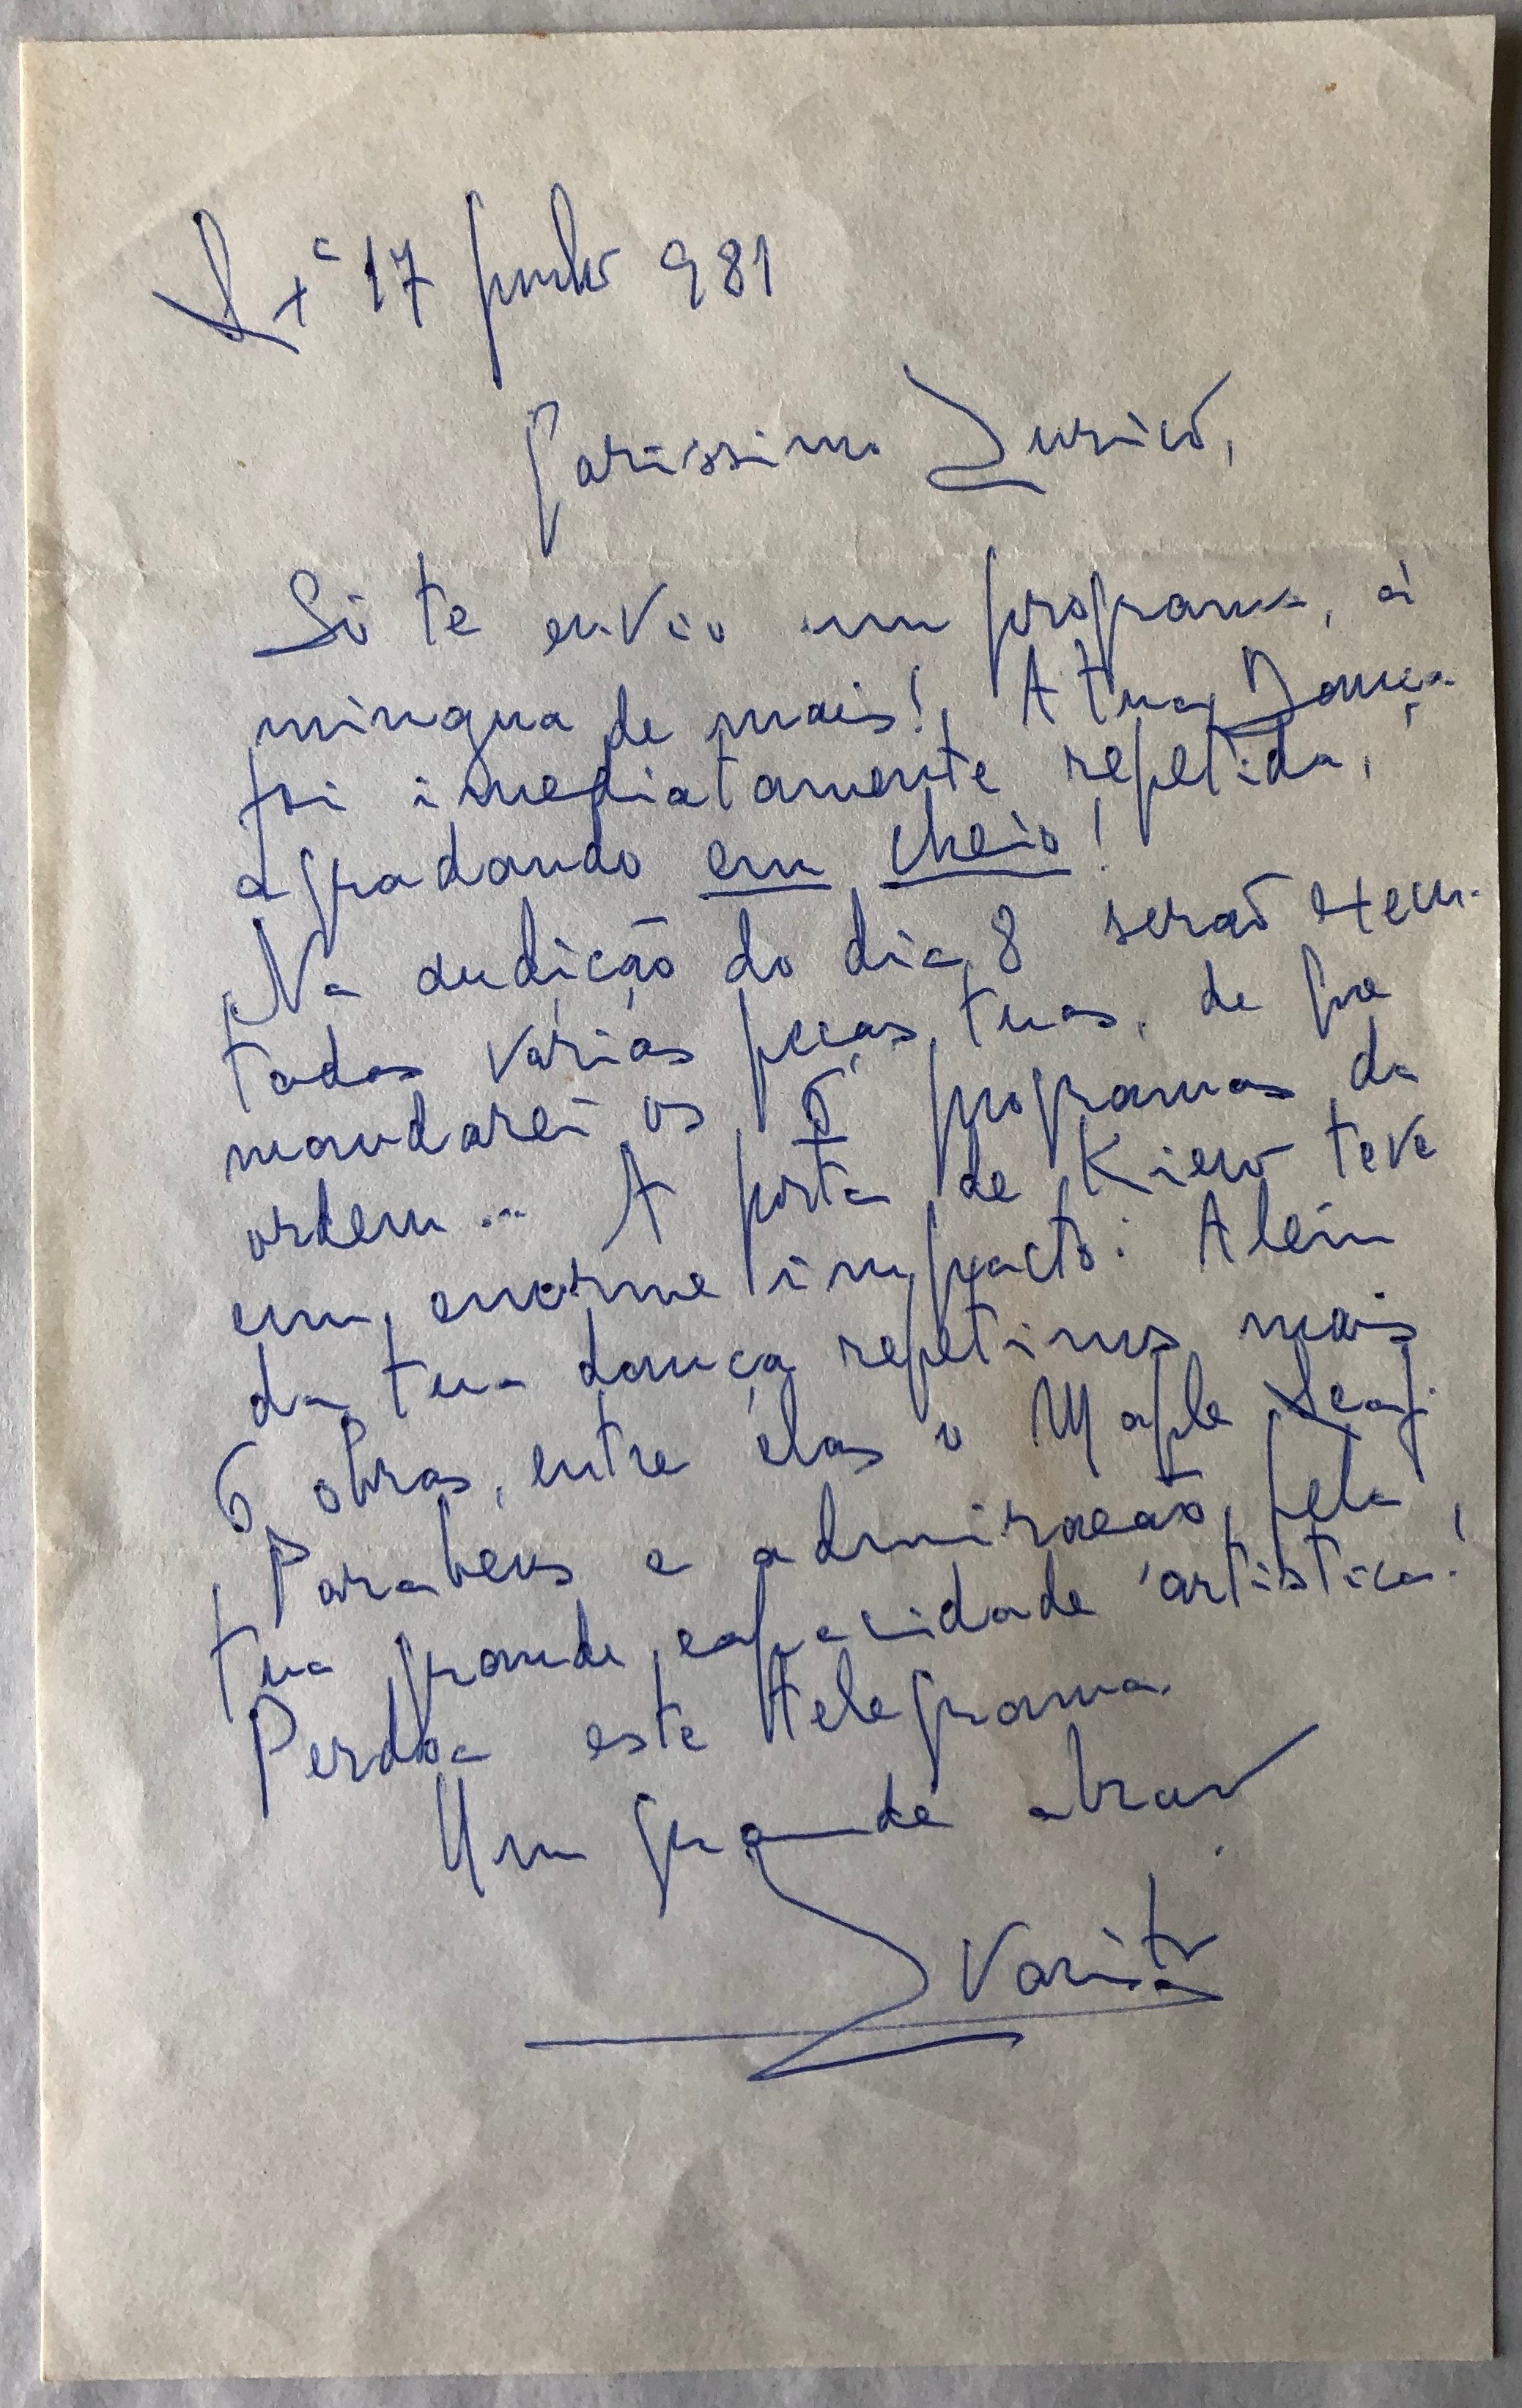 Lxª 17 Junho 981
Caríssimo Eurico,
Só te envio um programa, à
míngua de mais! A tua Dança
foi imediatamente repetida,
agradando em cheio!
Na audição do dia 8 serão execu-
tadas várias peças tuas, de que
mandarei os 6 programas da
ordem... A porta de Kiew teve
um enorme impacto. Além
da tua dança repetimos mais
6 obras, entre elas o Maple Leaf.
Parabens e admiração pela
tua grande capacidade artística!
Perdoa este telegrama.
Um grande abraço
Evaristo